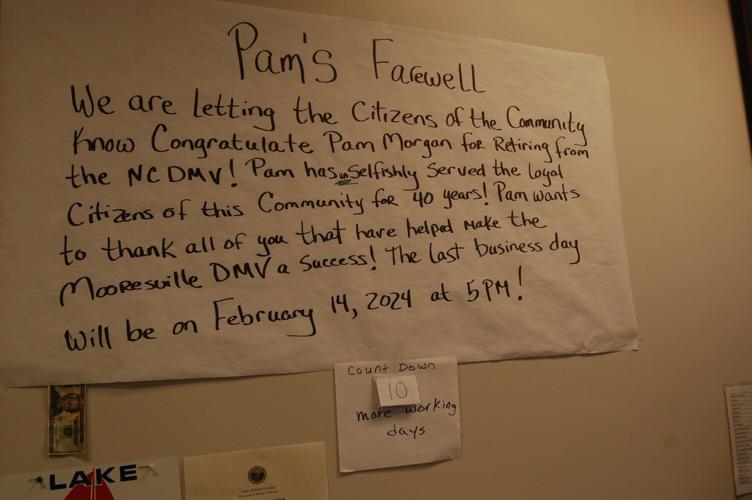 Pam's Farewell
We are letting the Citizens of the Community
Know Congratulate Pam Morgan for Retiring from
the NCDMV! Pam has unselfishly served the loyal
Citizens of this Community for 40 years! Pam wants
to thank all of you that have helped make the
Mooresville DMV a Success! The last business day
will be on February 14, 2024 at 5PM!
Count Down
10
more working
days
LAKE